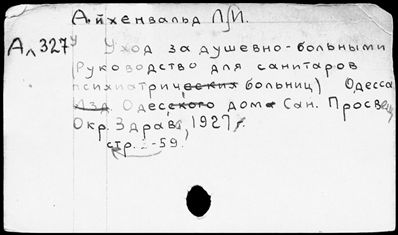 Айхенвальд Л.И.
Ал 327у Уход за душевно-больными
(Руководство для санитаров
психиатрических больниц) Одесса
Изд. Одесского дома Сан. Просвещ
Окр. Здрав, 1927 г.
стр. 2-59.